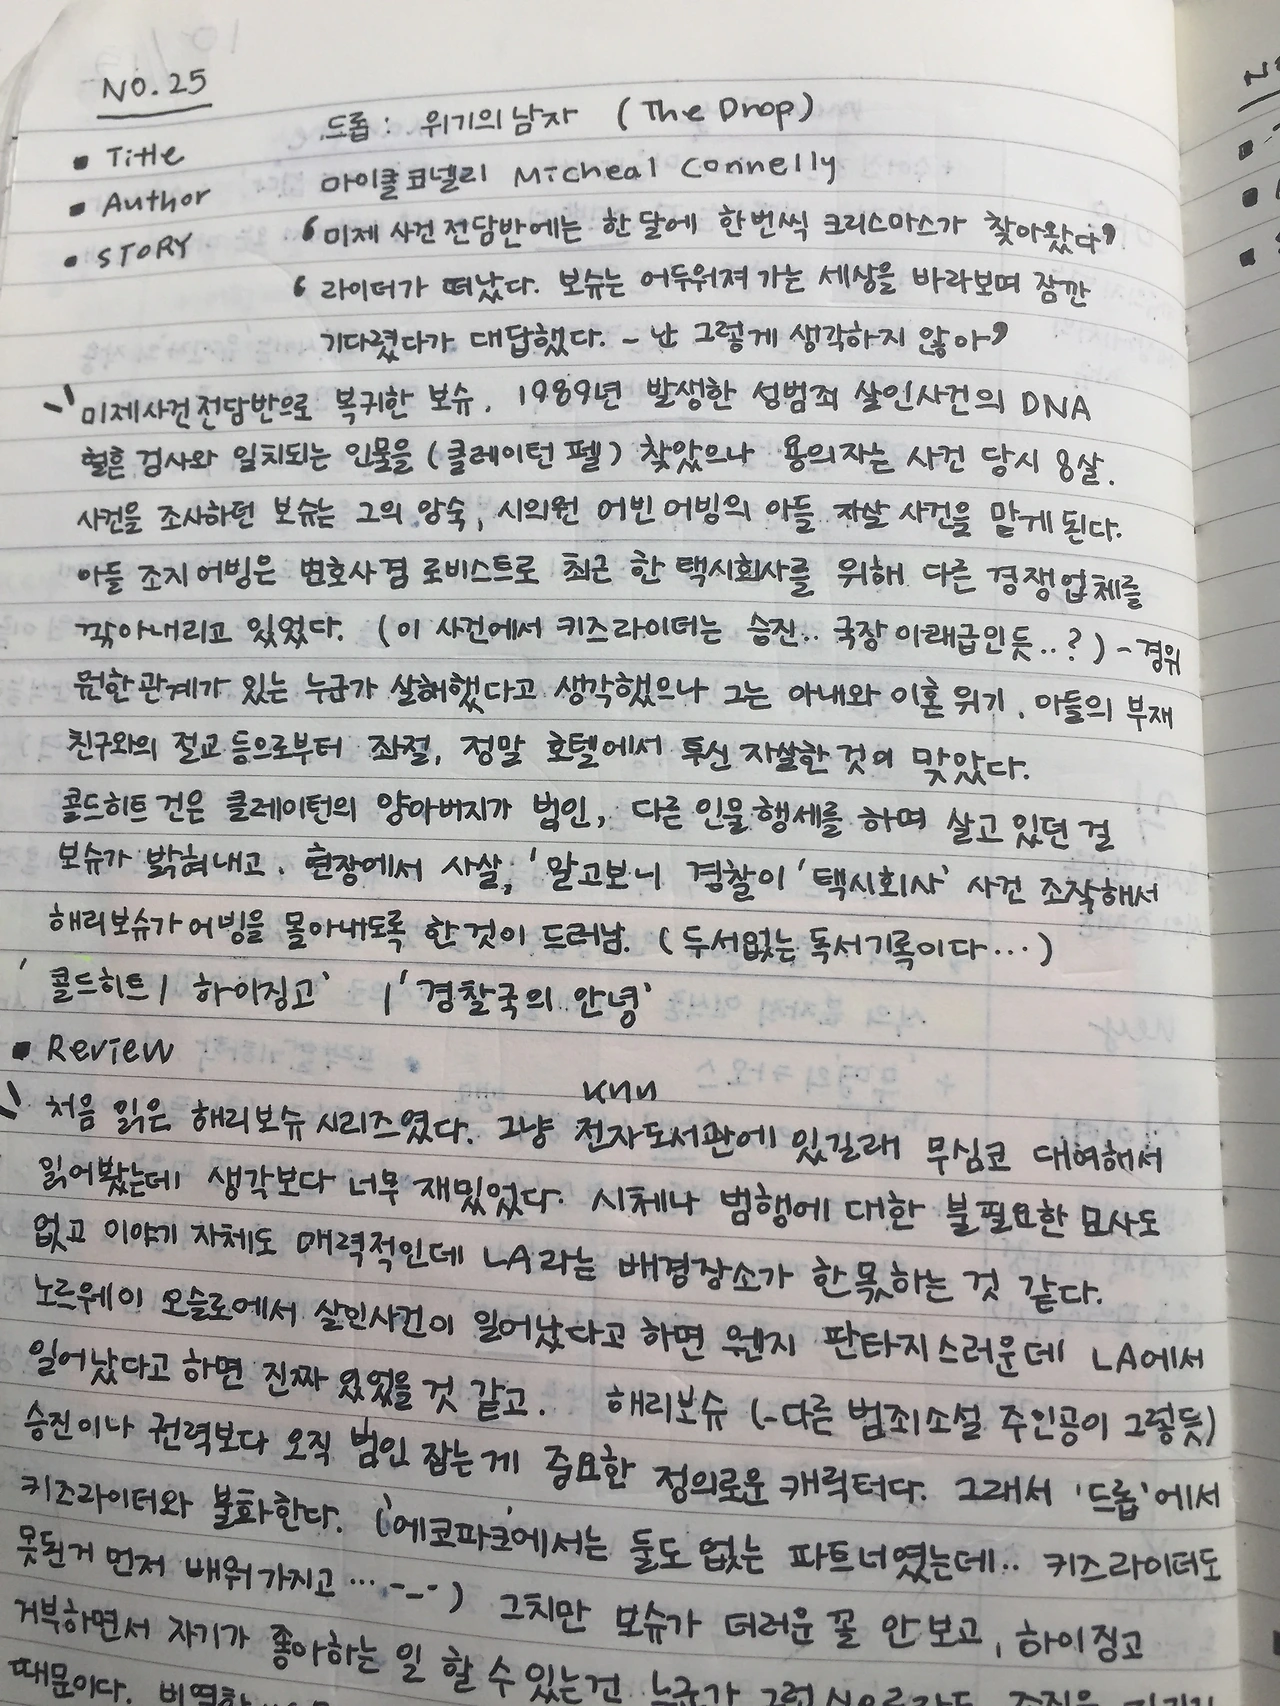 NO. 25
• Title 드롭 : 위기의 남자 (The Drop)
• Author 마이클 코넬리 Micheal Connelly
• STORY ‘미제 사건 전담반에는 한 달에 한번씩 크리스마스가 찾아왔다’
‘라이더가 떠났다. 보슈는 어두워져 가는 세상을 바라보며 잠깐
기다렸다가 대답했다. - 난 그렇게 생각하지 않아’
미제사건전담반으로 복귀한 보슈. 1989년 발생한 성범죄 살인사건의 DNA
혈흔 검사와 일치되는 인물을 (클레이턴 펠) 찾았으나 용의자는 사건 당시 8살.
사건을 조사하던 보슈는 그의 앙숙, 시의원 어빈 어빙의 아들 자살 사건을 맡게 된다.
아들 조지 어빙은 변호사 겸 로비스트로 최근 한 택시회사를 위해 다른 경쟁업체를
깎아내리고 있었다. (이 사건에서 키즈라이더는 승진.. 국장 아래급인듯..?) - 경위
원한관계가 있는 누군가 살해했다고 생각했으나 그는 아내와 이혼 위기, 아들의 부재
친구와의 절교 등으로부터 좌절, 정말 호텔에서 투신 자살한 것이 맞았다.
콜드히트 건은 클레이턴의 양아버지가 범인, 다른 인물 행세를 하며 살고 있던 걸
보슈가 밝혀내고. 현장에서 사살, '알고보니 경찰이 '택시회사' 사건 조작해서
해리보슈가 어빙을 몰아내도록 한 것이 드러남. (두서없는 독서기록이다...)
' 콜드히트 / 하이징고' / '경찰국의 안녕'
• Review
처음 읽은 해리보슈 시리즈였다. 그냥 전자도서관에 있길래 무심코 대여해서
읽어봤는데 생각보다 너무 재밌었다. 시체나 범행에 대한 불필요한 묘사도
없고 이야기 자체도 매력적인데 LA라는 배경장소가 한몫하는 것 같다.
노르웨이 오슬로에서 살인사건이 일어났다고 하면 웬지 판타지스러운데 LA에서
일어났다고 하면 진짜 있었을 것 같고. 해리보슈 (-다른 범죄소설 주인공이 그렇듯)
승진이나 권력보다 오직 범인 잡는게 중요한 정의로운 캐릭터다. 그래서 '드롭'에서
키즈라이더와 불화한다. ('에코파크'에서는 둘도 없는 파트너였는데.. 키즈라이더도
못된거 먼저 배워가지고 ... -_-) 그치만 보슈가 더러운 꼴 안 보고, 하이징고
거부하면서 자기가 좋아하는 일 할 수 있는건 누군가
때문이다.